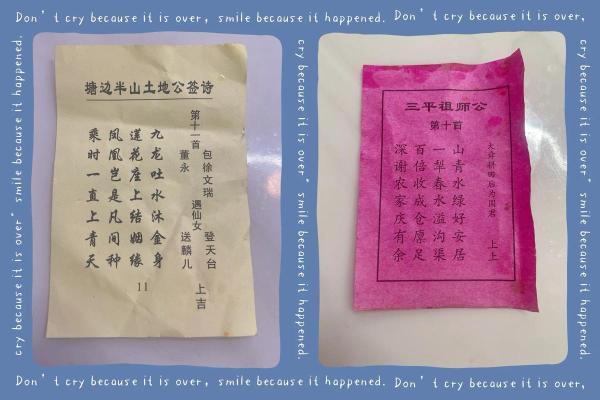 Don't cry because it is over, smile because it happened. Don't cry because it is over,
cry because it is over" smile because it happened.
塘边半山土地公签诗
第十一首
包徐文瑞 登天台 上吉
董永 遇仙女 送麟儿
九龙吐水沐金身
莲花座上结姻缘
凤凰岂是凡间种
乘时一直上青天
11
cry because it is over" smile because it happened.
三平祖师公
第十首
大舜耕田后为国君 上上
山青水绿好安居
一犁春水溢沟渠
百倍收成仓廪足
深谢农家庆有余
cry because it is over" smile because it happened.
Don't cry because it is over, smile because it happened. Don't cry because it is over,